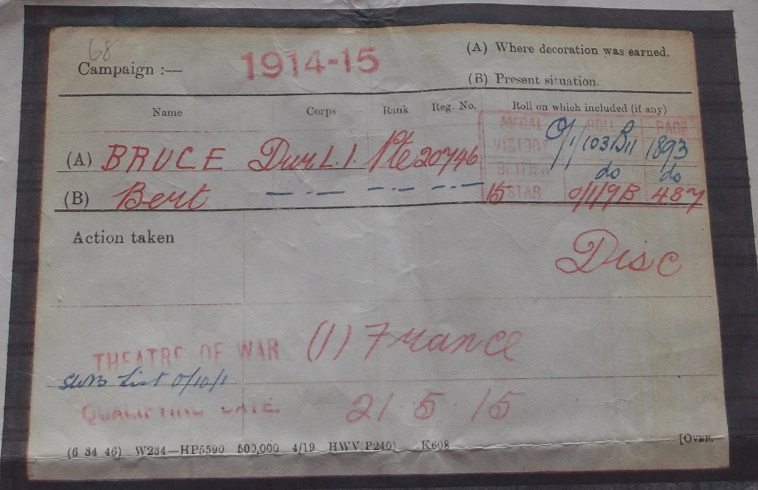 68
(A) Where decoration was earned.
Campaign :— 1914-15
(B) Present situation.
Name Corps Rank Reg. No. Roll on which included (if any)
MEDAL ROLL PAGE
(A) BRUCE Dur L. I. Pte 20746 VICTORY O/1/103 B11 1893
BRITISH do do
(B) Bert —·— —·— —·— 15 STAR O/1/19B 487
Action taken
Disc
THEATRE OF WAR (1) France
SWB List O/10/1
QUALIFYING DATE. 21 5 15
(6 34 46) W234—HP5590 500,000 4/19 HWV(P240) K608
[OVER.